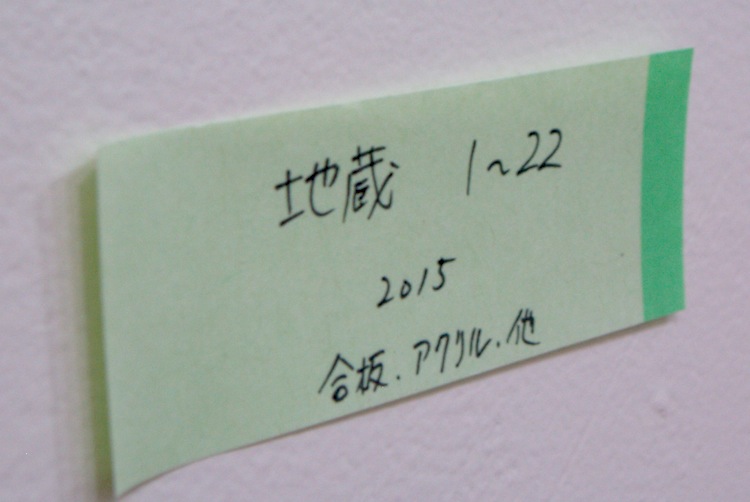 地蔵 1~22
2015
合板.アクリル.他